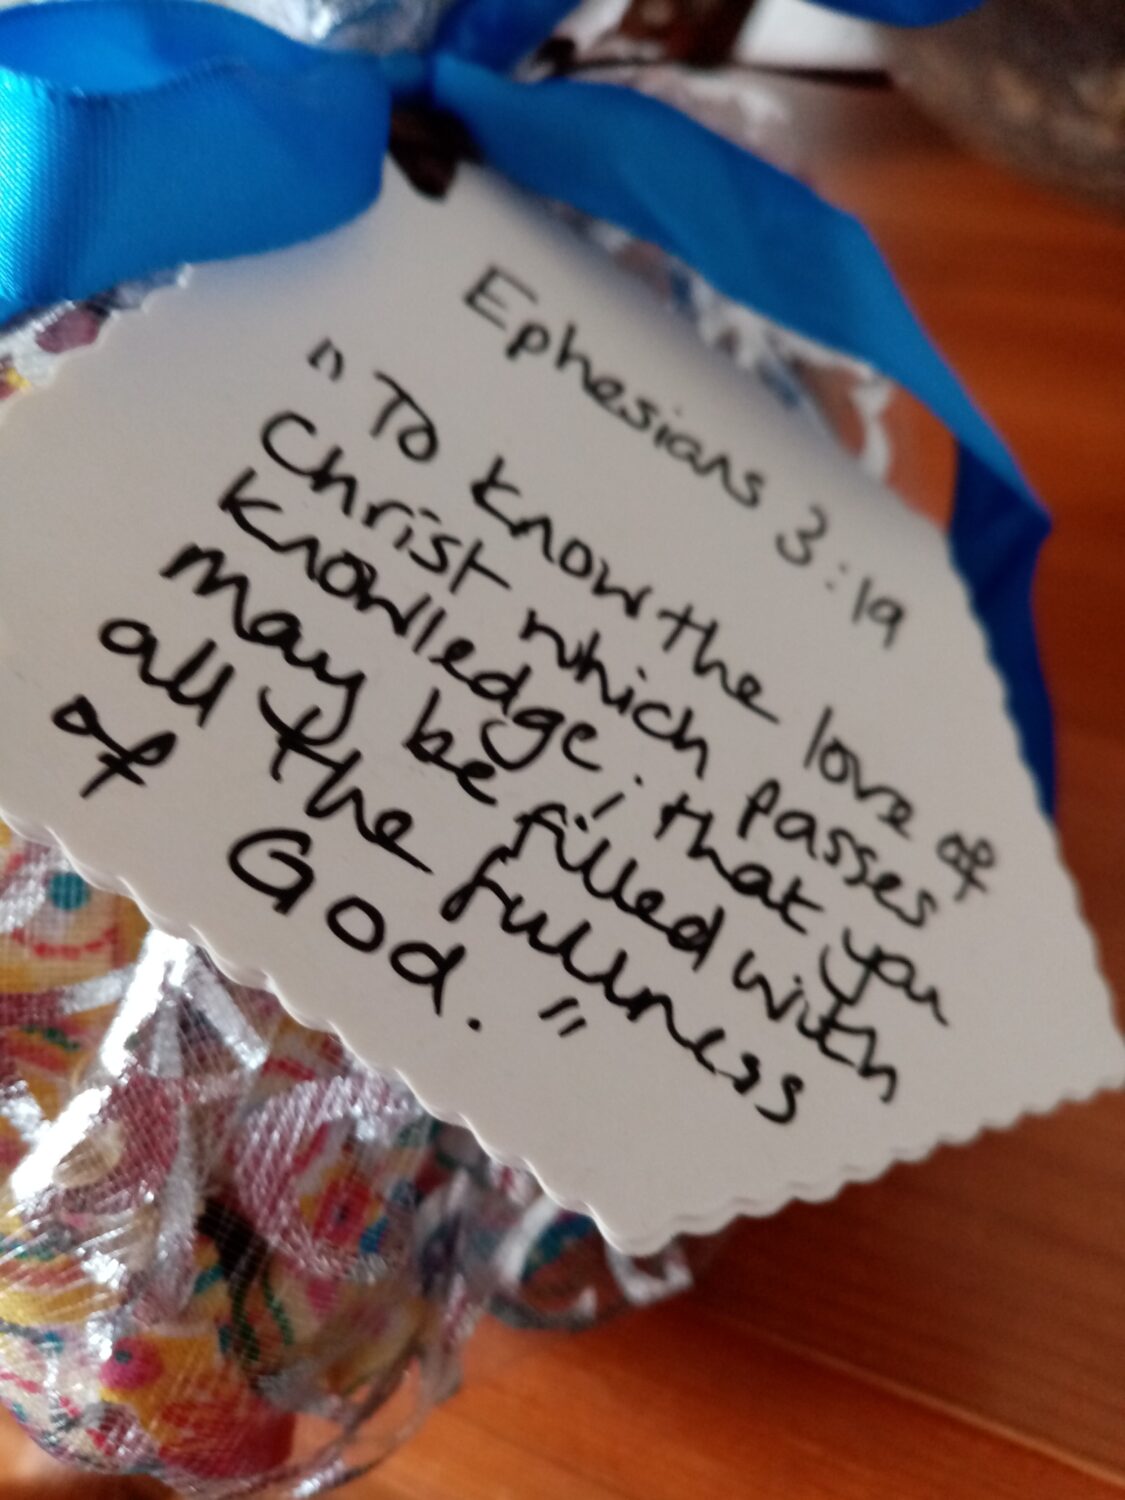 Ephesians 3:19
"To know the love of
Christ which passes
knowledge; that you
may be filled with
all the fullness
of God."